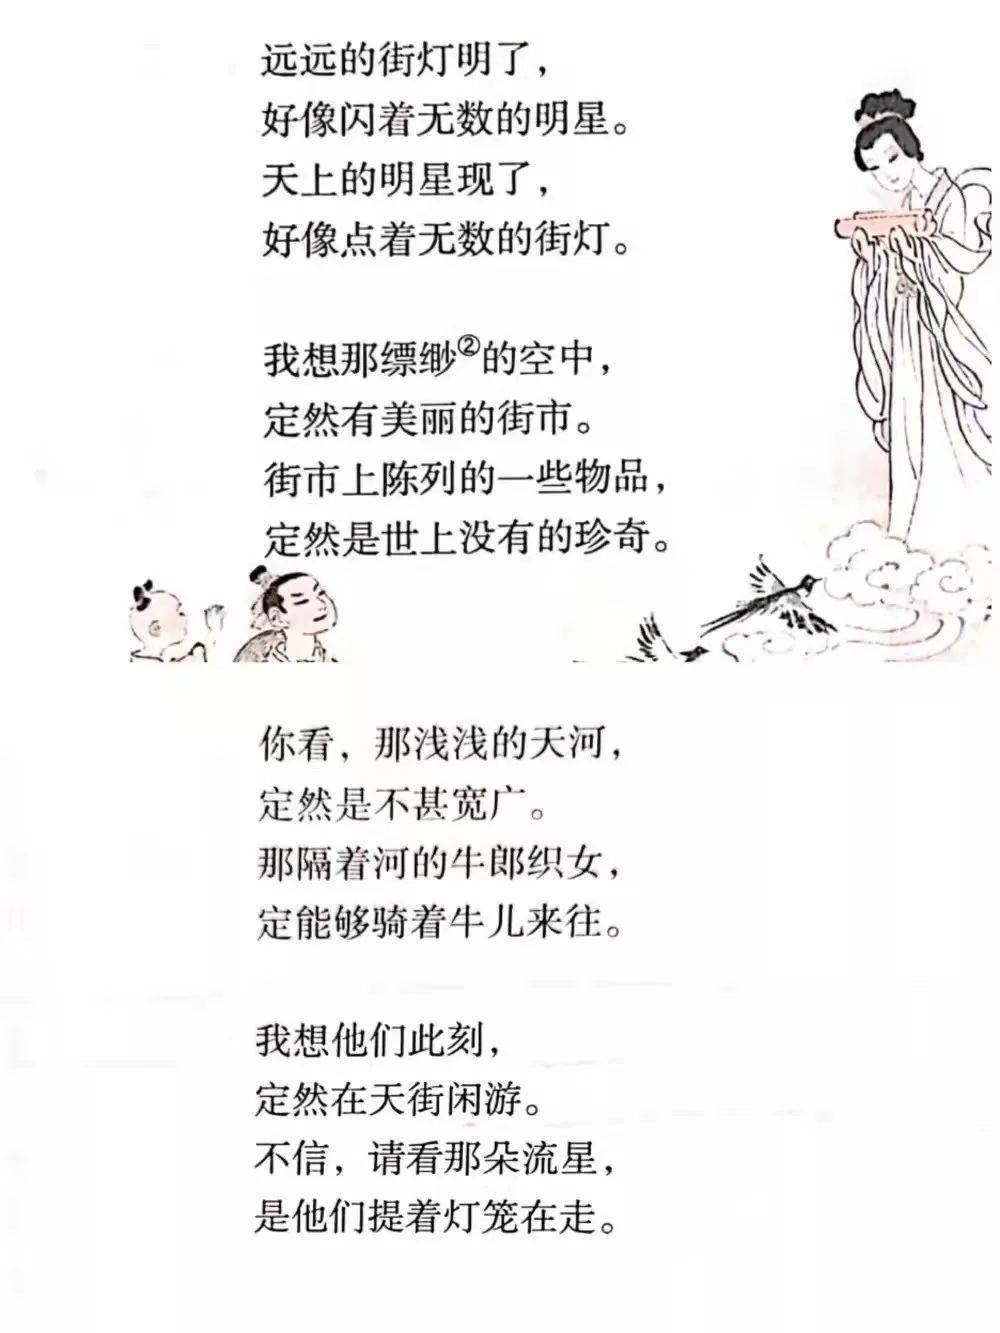 远远的街灯明了，
好像闪着无数的明星。
天上的明星现了，
好像点着无数的街灯。
我想那缥缈②的空中，
定然有美丽的街市。
街市上陈列的一些物品，
定然是世上没有的珍奇。
你看，那浅浅的天河，
定然是不甚宽广。
那隔着河的牛郎织女，
定能够骑着牛儿来往。
我想他们此刻，
定然在天街闲游。
不信，请看那朵流星，
是他们提着灯笼在走。